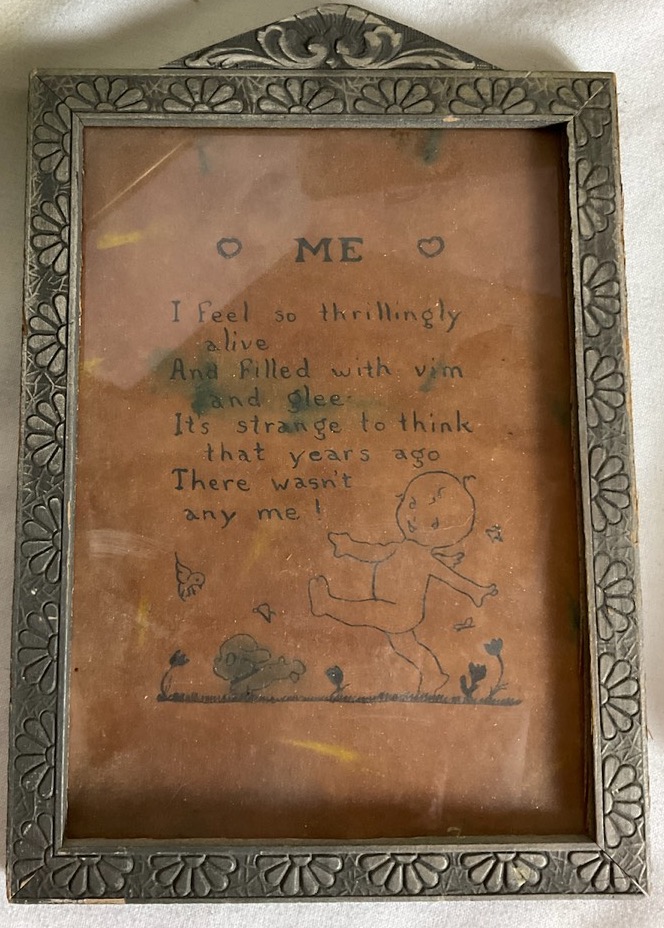 ME
I feel so thrillingly
alive
And filled with vim
and glee
It's strange to think
that years ago
There wasn't
any me!